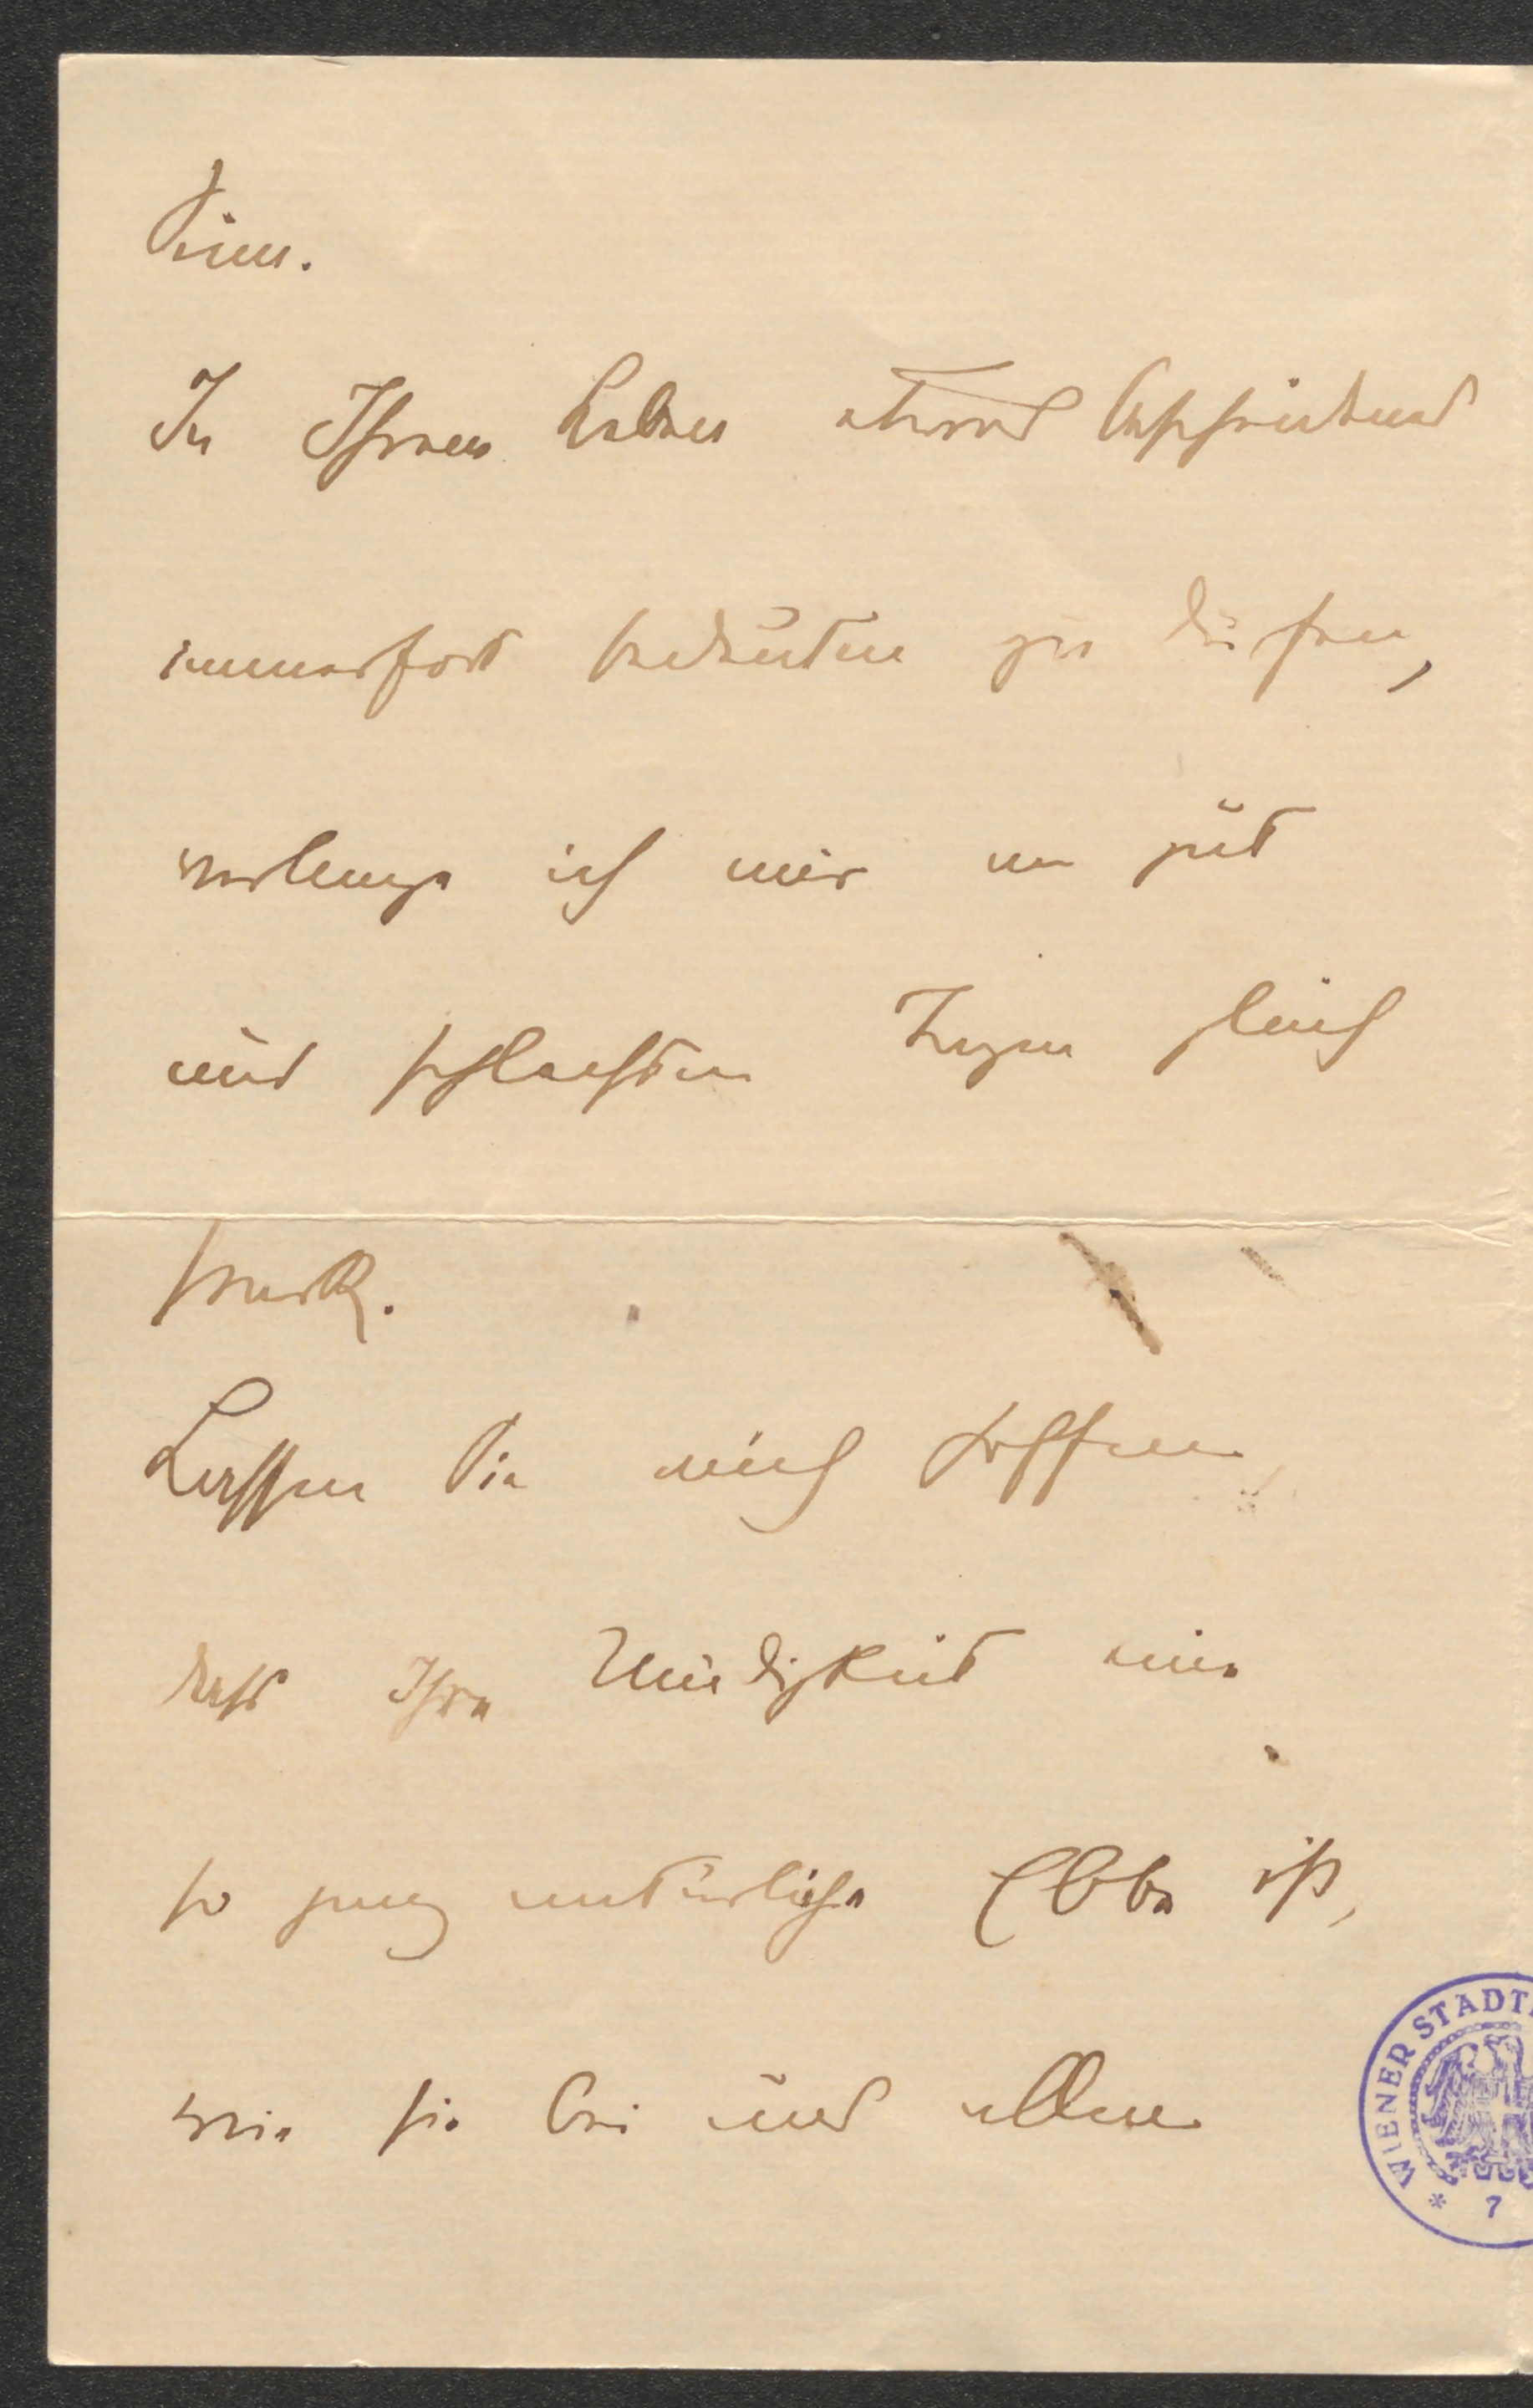 Sinn.
In Ihrem Leben etwas Bescheidenes
immerfort bedeuten zu dürfen,
verlange ich mir an gut
und schlechten Tagen gleich
stark.
Lassen Sie mich hoffen,
dass Ihre Müdigkeit eine
so ganz natürliche Ebbe ist,
wie sie bei uns allen
WIENER STADT
* 7